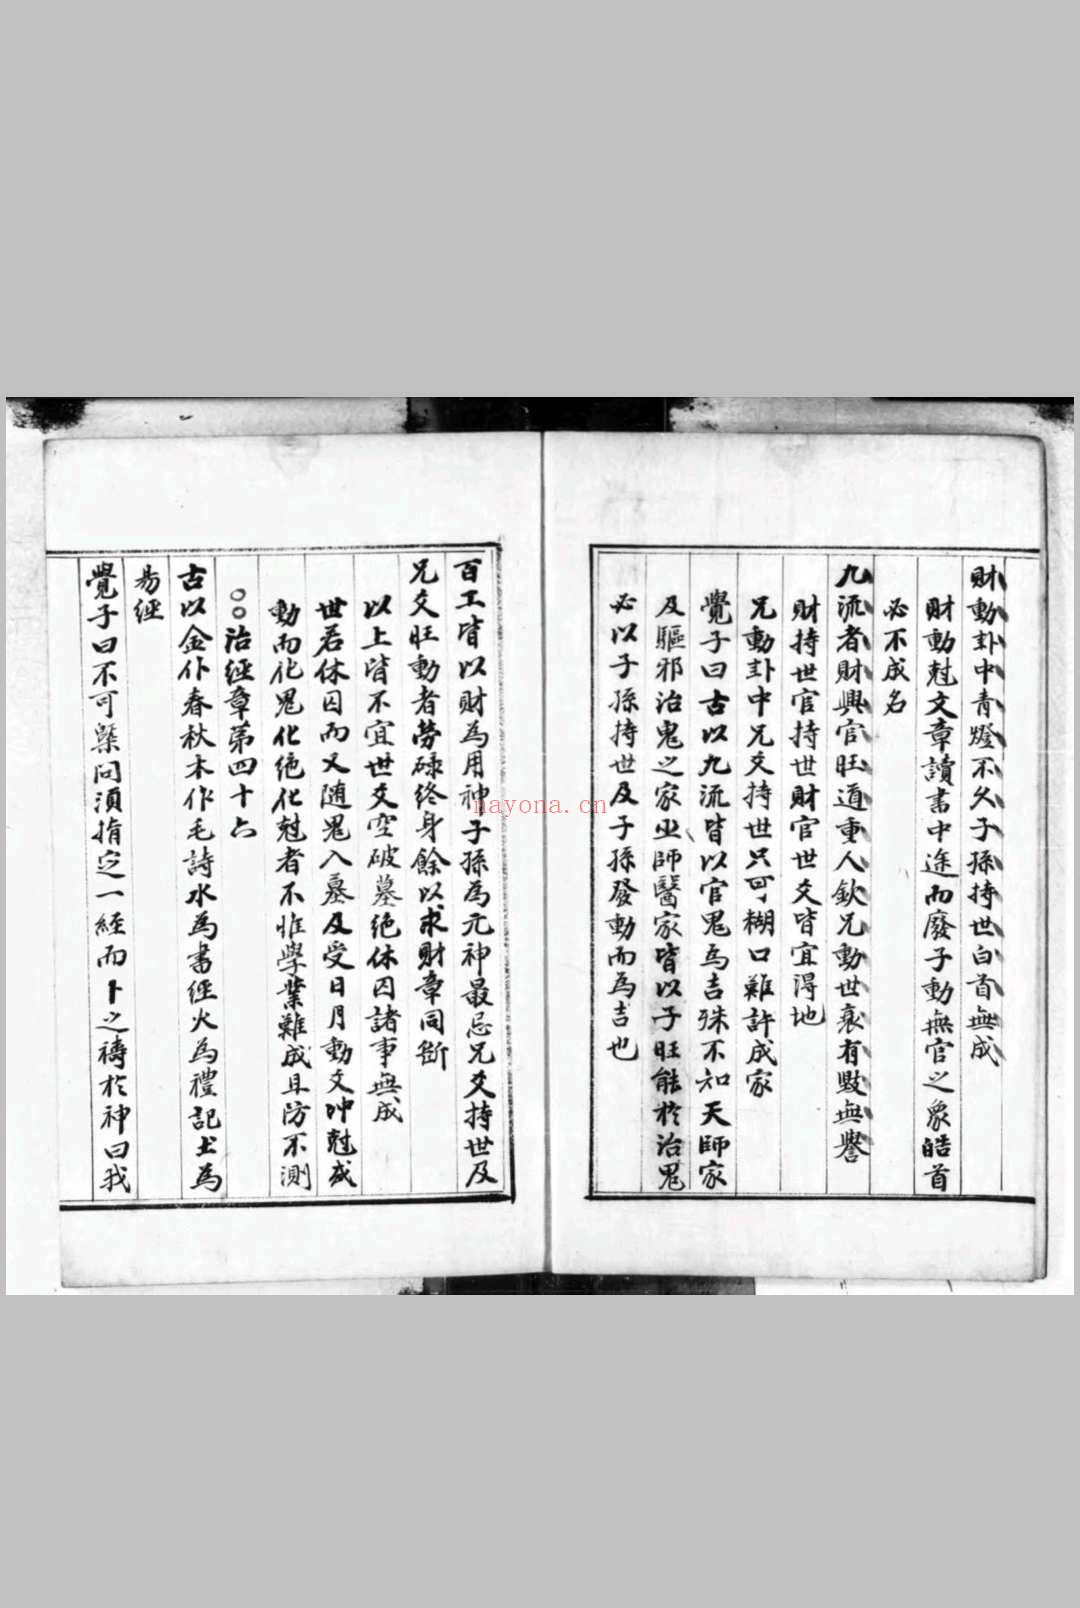 財動卦中青燈不久子孫持世白首無成
財動尅文章讀書中途而廢子動無官之象皓首
必不成名
九流者財興官旺道重人欽兄動世衰有毀無譽
財持世官持世財官世爻皆宜得地
兄動卦中兄爻持世只可糊口難許成家
覺子曰古以九流皆以官鬼為吉殊不知天師家
及驅邪治鬼之家巫師醫家皆以子旺能於治鬼
必以子孫持世及子孫發動而為吉也
百工皆以財為用神子孫為元神最忌兄爻持世及
兄爻旺動者勞碌終身餘以求財章同斷
以上皆不宜世爻空破墓絕休囚諸事無成
世若休囚而又随鬼入墓及受日月動爻冲尅或
動而化鬼化絕化尅者不惟學業難成且防不測
○○治經章第四十六
古以金作春秋木作毛詩水為書經火為禮記土為
易經
覺子曰不可槩問須指定一經而卜之禱於神曰我
nayona.cn